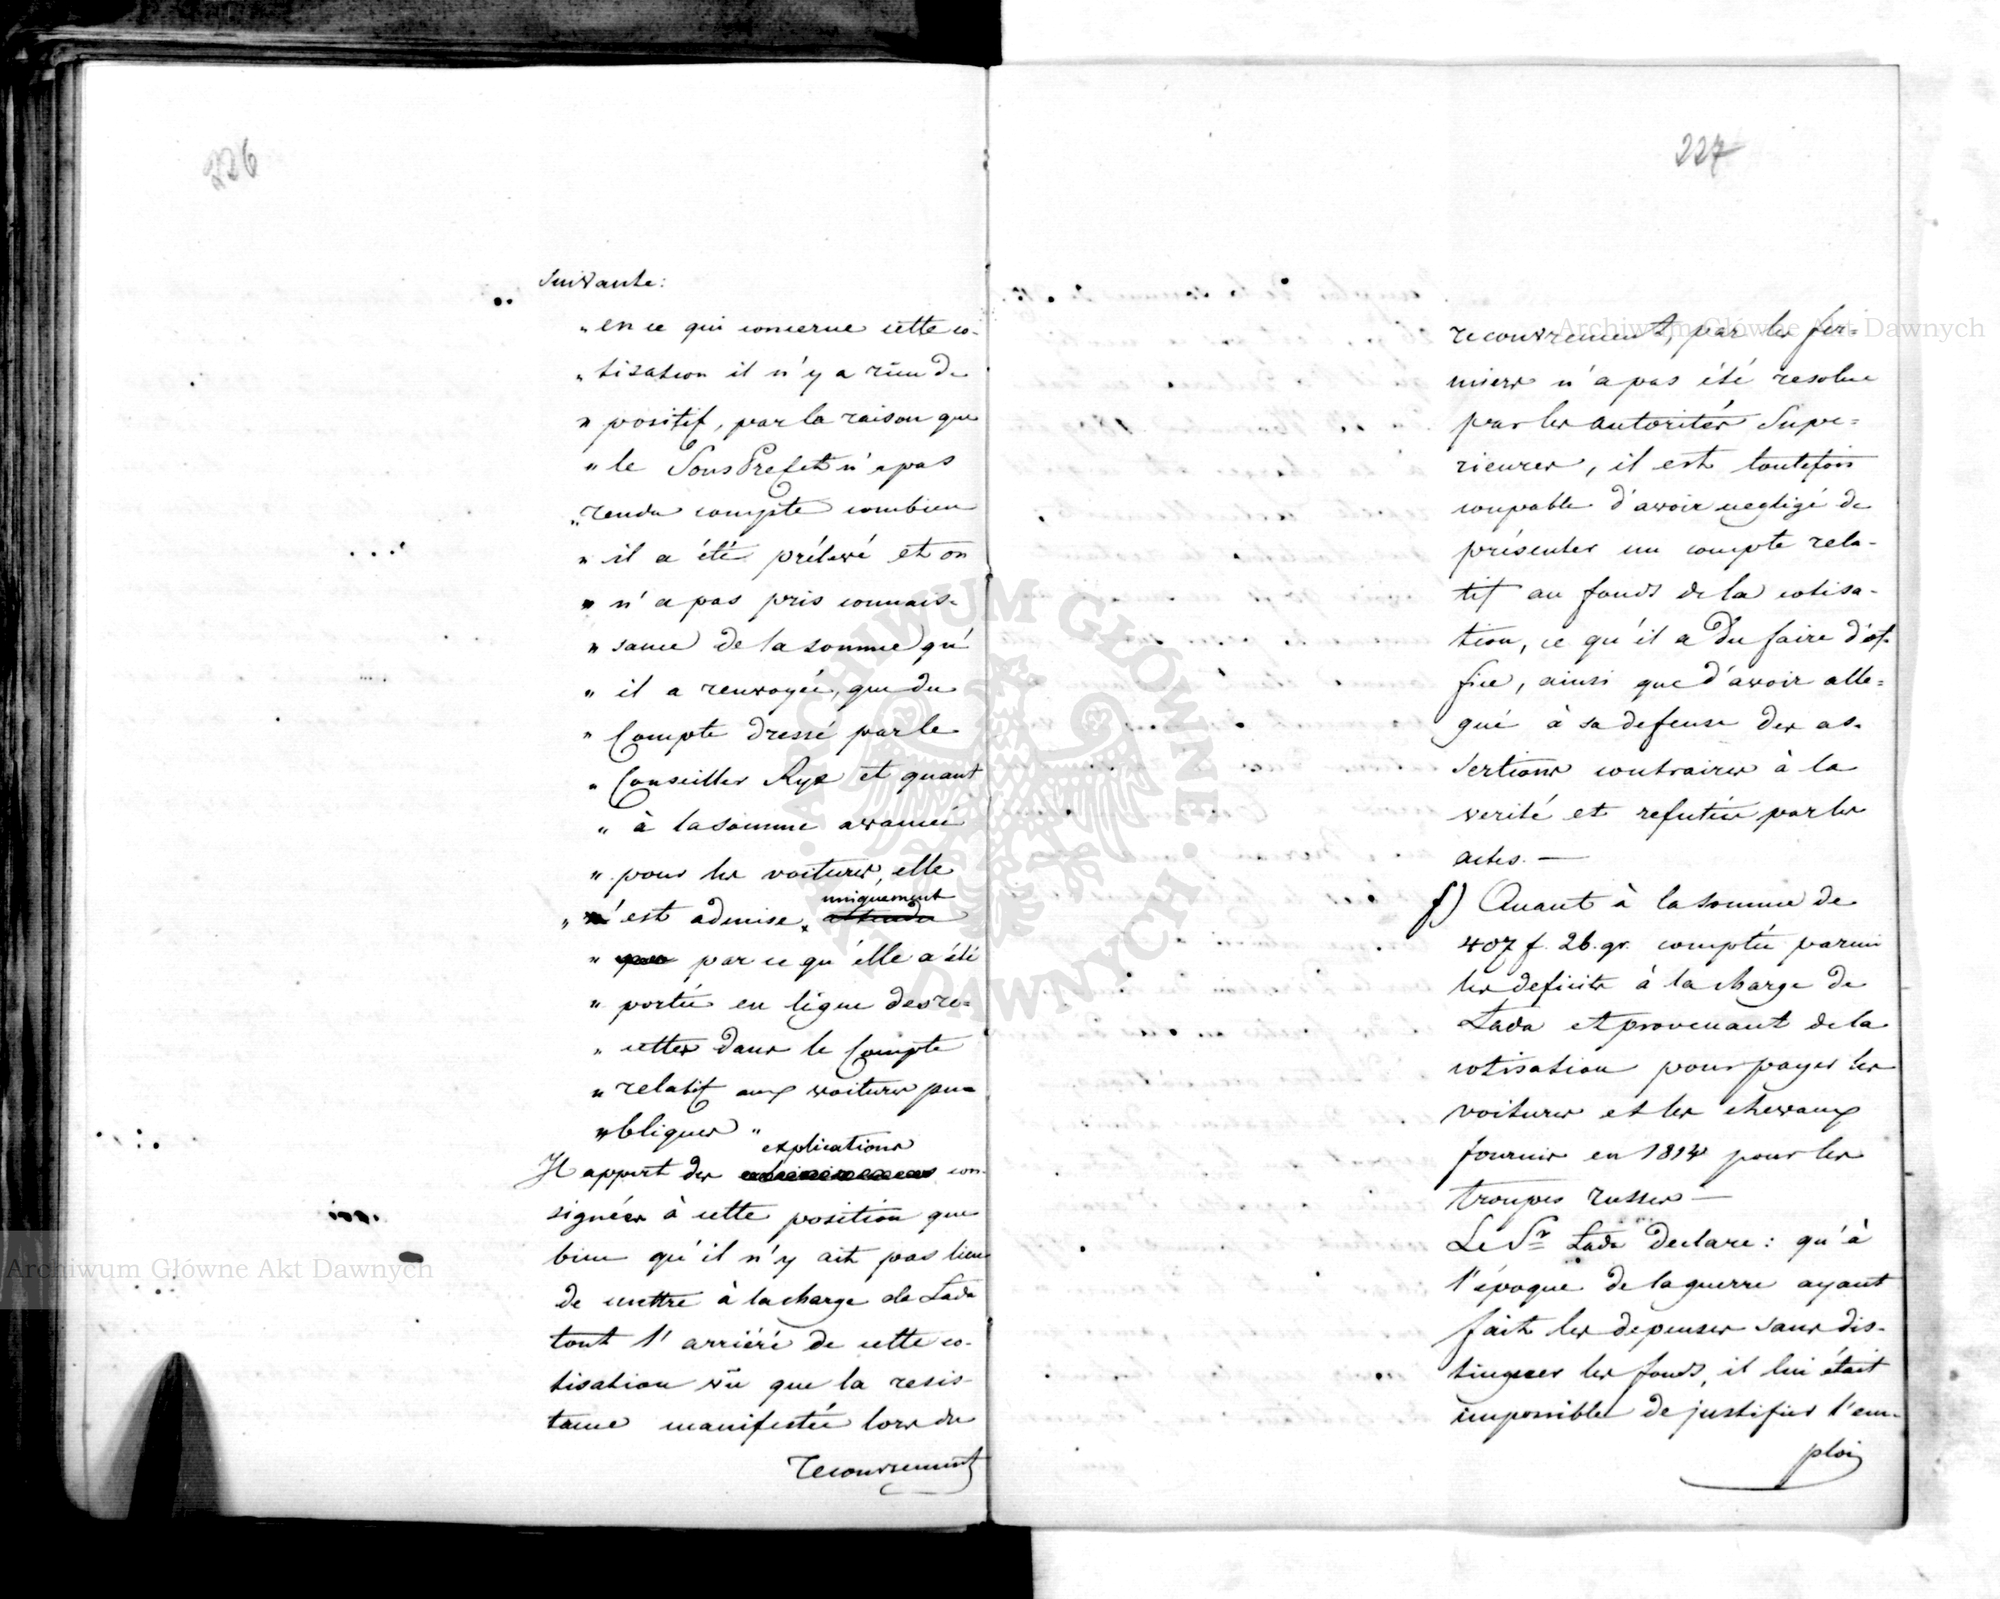 226
Suivante:
„ en ce qui concerne cette co-
„ tisation il n'y a rien de
„ positif, par la raison que
„ le SousPrefet n'a pas
„ rendu compte combien
„ il a été prélevé et on
„ n'a pas pris connais-
„ sance de la somme qu'
„ il a renvoyée, que du
„ Compte dressé par le
„ Conseiller Rys et quant
„ à la somme avancée
„ pour les voitures, elle
uniquement
„ n'est admise attendu
„ que par ce qu'elle a été
„ portée en ligne des re=
„ cettes dans le Compte
„ relatif aux voitures pu=
„ bliques „
explications
Il appert des con-
signées à cette position que
bien qu'il n'y ait pas lieu
de mettre à la charge de Lada
tout l'arriéré de cette co-
tisation vu que la resis-
tance manifestée lors du
recouvrement
227
recouvrement, par les fer=
miers n'a pas été resolue
par les autorités Supe=
rieures, il est toutefois
coupable d'avoir negligé de
présenter un compte rela-
tif au fonds de la cotisa-
tion, ce qu'il a du faire d'of-
fice, ainsi que d'avoir alle=
gué à sa defense des as-
sertions contraires à la
verité et refutées par les
actes. —
f) Quant à la somme de
407 f. 26. gr. comptée parmi
les deficits à la charge de
Lada et provenant de la
cotisation pour payer les
voitures et les chevaux
fournis en 1814 pour les
troupes russes —
Le Sr Lada declare: qu'à
l'époque de la guerre ayant
fait les depenses sans dis-
tinguer les fonds, il lui était
impossible de justifier l'em-
ploi
Archiwum Główne Akt Dawnych
Archiwum Główne Akt Dawnych
ARCHIWUM GŁÓWNE AKT DAWNYCH